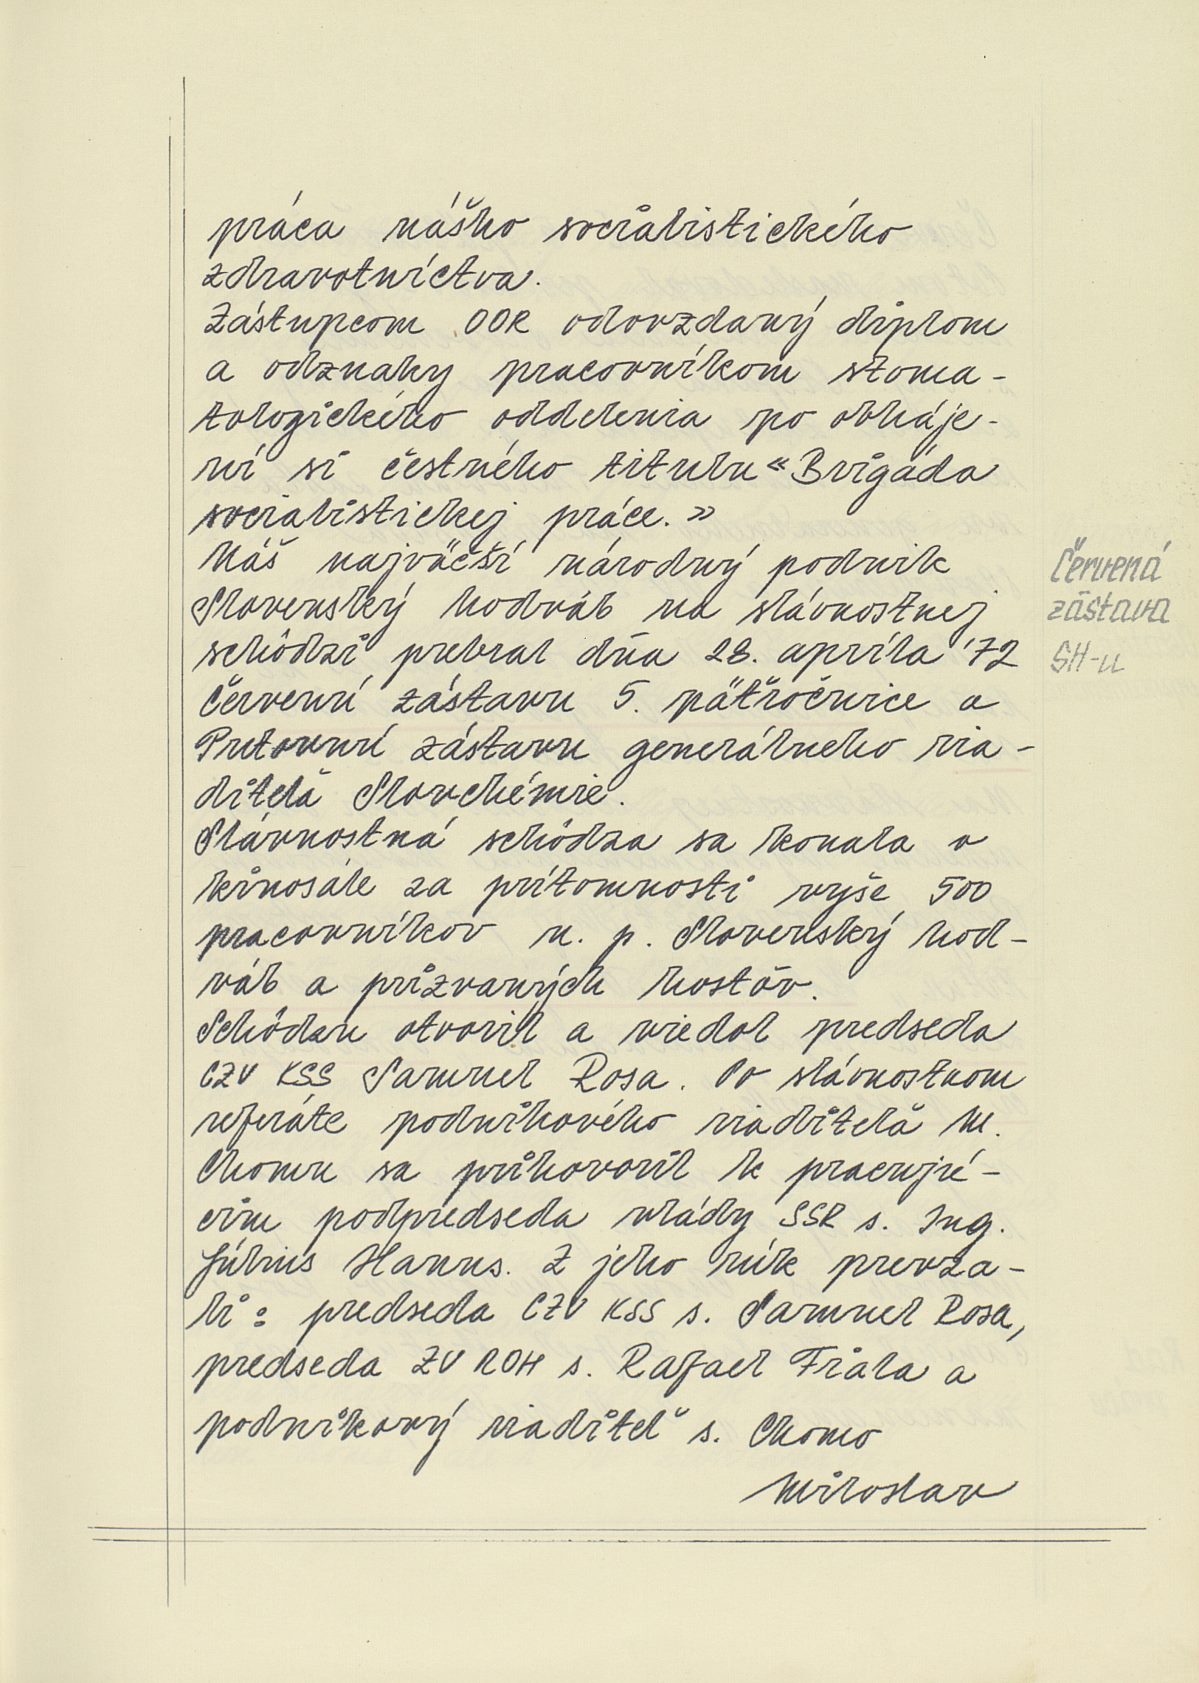 práca nášho socialistického
zdravotníctva.
Zástupcom OOR odovzdaný diplom
a odznaky pracovníkom stoma-
tologického oddelenia po obháje-
ní si čestného titulu «Brigáda
socialistickej práce.»
Náš najväčší národný podnik
Slovenský hodváb na slávnostnej
schôdzi prebral dňa 28. apríla '72
Červenú zástavu 5. päťročnice a
Putovnú zástavu generálneho ria-
diteľa Slovchémie.
Slávnostná schôdza sa konala v
kinosále za prítomnosti vyše 500
pracovníkov n. p. Slovenský hod-
váb a prizvaných hostôv.
Schôdzu otvoril a viedol predseda
CZV KSS Samuel Rosa. Po slávnostnom
referáte podnikového riaditeľa M.
Chomu sa prihovoril k pracujú-
cim podpredseda vlády SSR s. Ing.
Július Hanus. Z jeho rúk prevza-
li: predseda CZV KSS s. Samuel Rosa,
predseda ZV ROH s. Rafael Fiala a
podnikový riaditeľ s. Chomo
Miloslav
Červená
zástava
SH-u